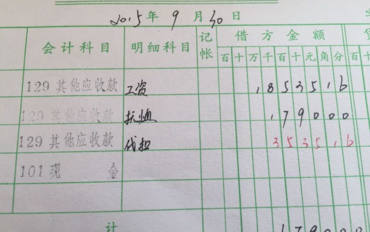 2015年 9月 30日
会计科目 明细科目 记帐 借方金额
百十万千百十元角分 百十
129 其他应收款 工资 1853516
129 其他应收款 抚恤 179000
129 其他应收款 代扣 353516
101 现 金
计 179000